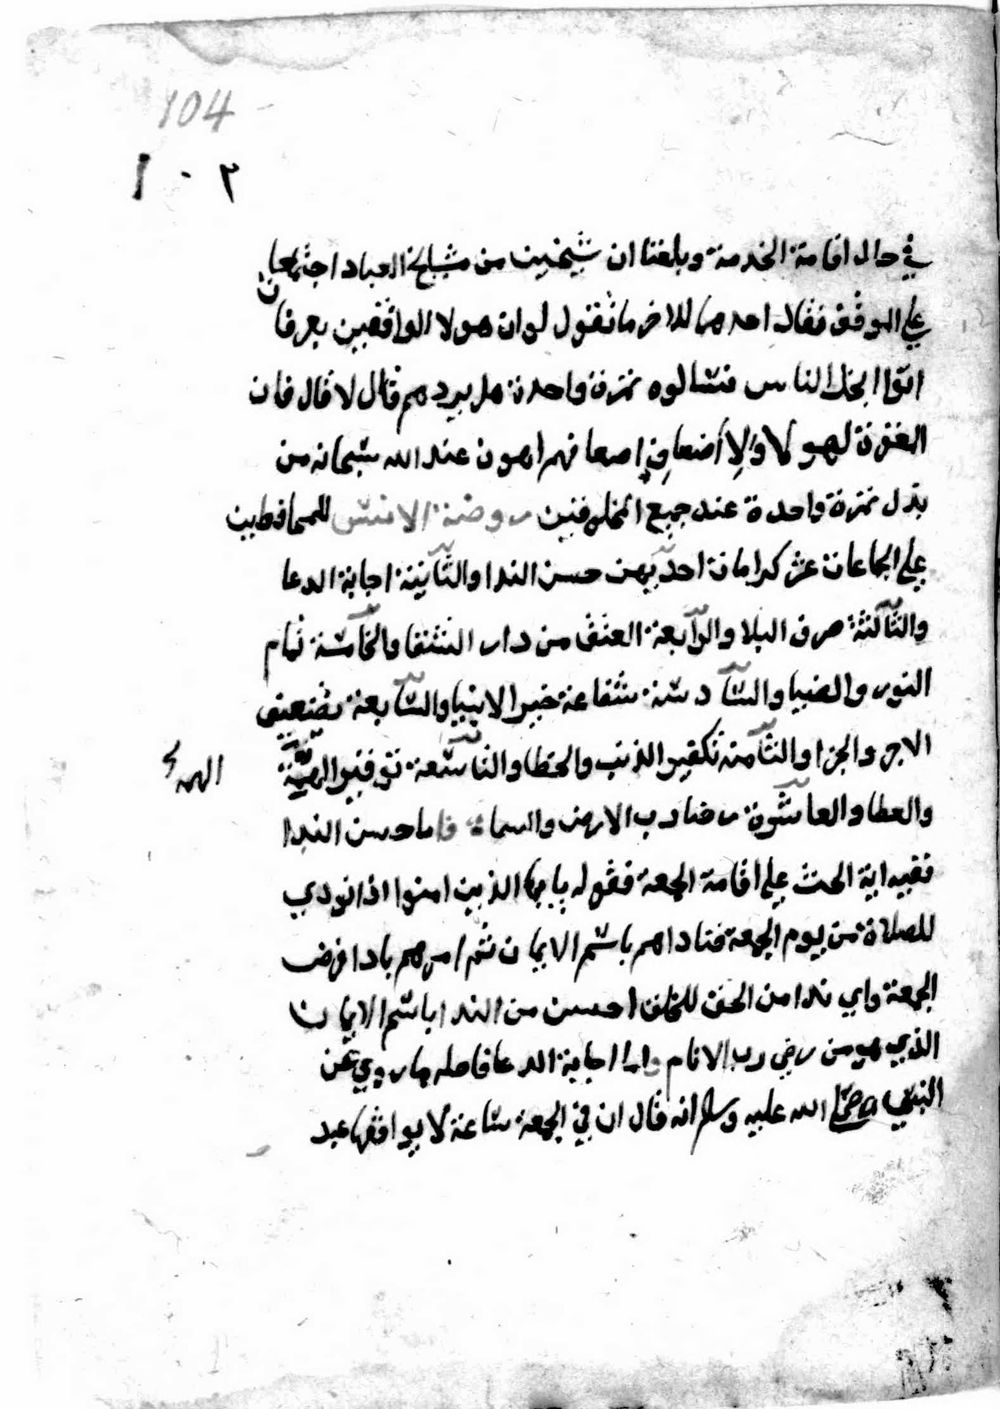 104
١٠٢
في حال اقامة الخدمة وبلغنا ان شيخين من مشايخ العباد اجتمعا
على الموقف فقال احدهما للاخر ما تقول لو ان هولا الواقفين بعرفان
اتوا ابخل الناس فسالوه تمرة واحدة هل يردهم قال لا قال فان
المغفرة لهولاء ولاضعاف اضعافهم اهون عند الله سبحانه من
بذل تمرة واحدة عند جميع المخلوقين روضة الانس للمحافظين
على الجماعات عشر كرامات احديهن حسن الندا والثانية اجابة الدعا
والثالثة صرف البلا والرابعة العتق من دار الشقا والخامسة تمام
النور والضيا والسادسة شفاعة خير الانبيا والسابعة تضعيف
الاجر والجزا والثامنة تكفير الذنب والخطا والتاسعة توفير الهبة
والعطا والعاشرة رضا رب الارض والسماء فاما حسن الندا
ففيه اية الحث على اقامة الجمعة فقوله يايها الذين امنوا اذا نودي
للصلاة من يوم الجمعة فناداهم باسم الايمان ثم امرهم باداء فرض
الجمعة واي ندا من الحق للخلق احسن من الندا باسم الايمان
الذي هو من رضي رب الانام واما اجابة الدعا فاصله ما روي عن
النبي صلى الله عليه وسلم انه قال ان في الجمعة ساعة لا يوافقها عبد